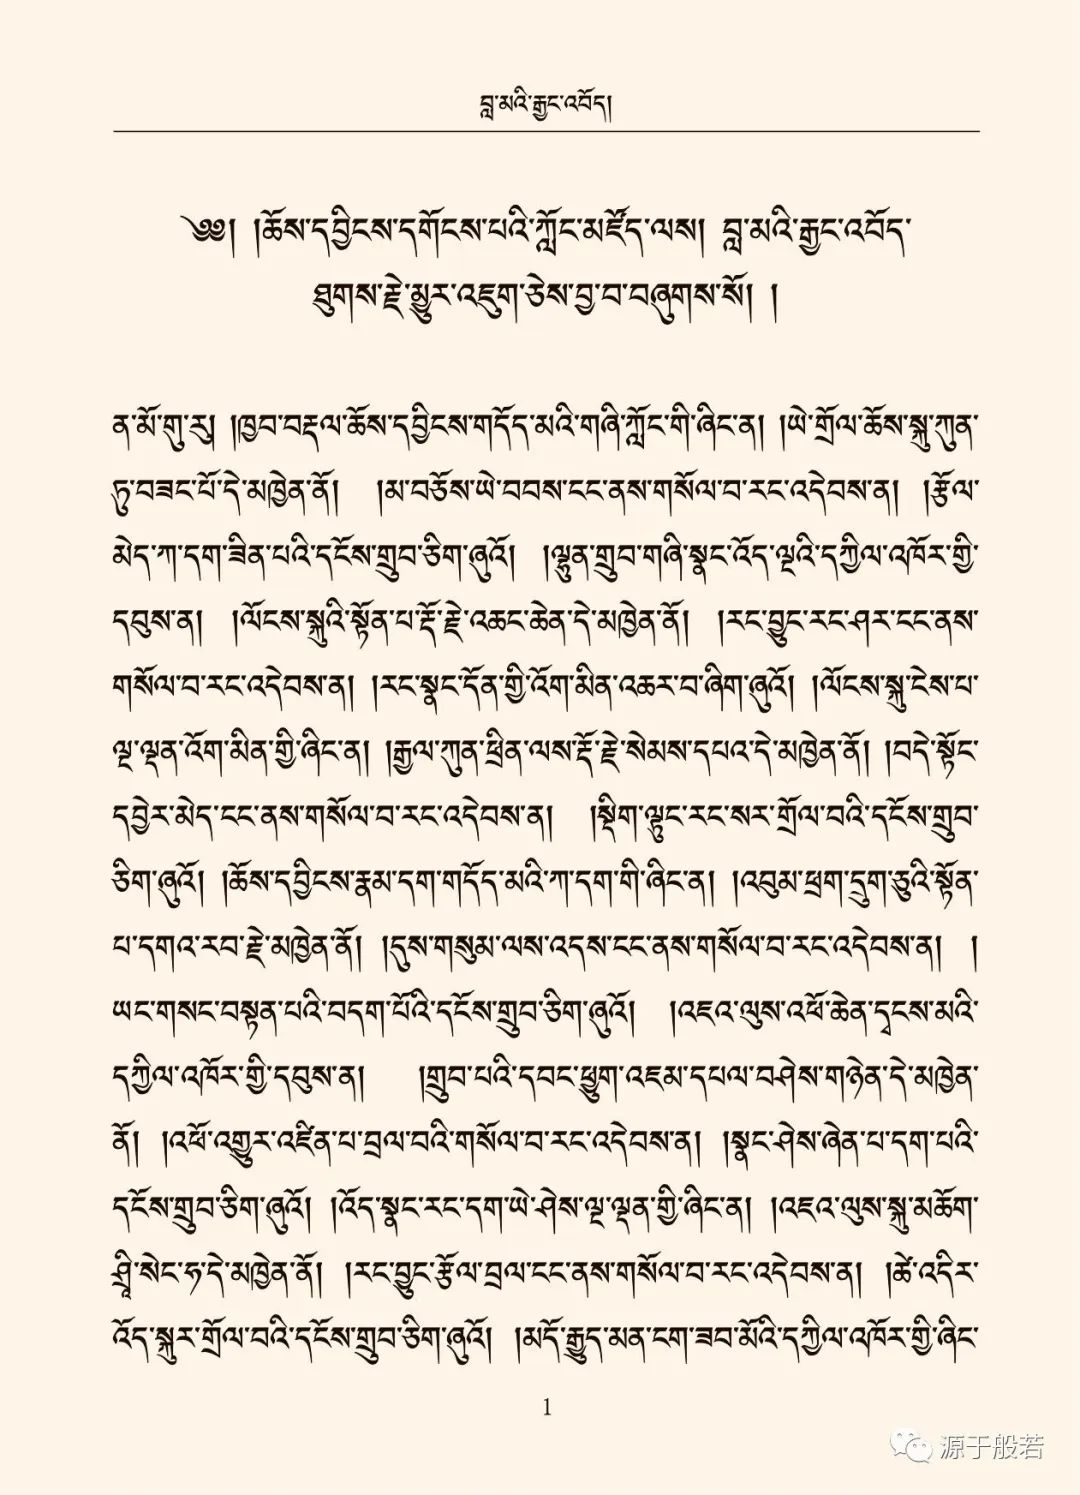 བླ་མའི་རྒྱང་འབོད།
༄༅། །ཆོས་དབྱིངས་དགོངས་པའི་ཀློང་མཛོད་ལས། བླ་མའི་རྒྱང་འབོད་
ཐུགས་རྗེ་མྱུར་འཇུག་ཅེས་བྱ་བ་བཞུགས་སོ། །
ན་མོ་གུ་རུ། །ཁྱབ་བརྡལ་ཆོས་དབྱིངས་གདོད་མའི་གཞི་ཀློང་གི་ཞིང་ན། །ཡེ་གྲོལ་ཆོས་སྐུ་ཀུན་
ཏུ་བཟང་པོ་དེ་མཁྱེན་ནོ། །མ་བཅོས་ཡེ་བབས་ངང་ནས་གསོལ་བ་རང་འདེབས་ན། །རྩོལ་
མེད་ཀ་དག་ཟིན་པའི་དངོས་གྲུབ་ཅིག་ཞུའོ། །ལྷུན་གྲུབ་གཞི་སྣང་འོད་ལྔའི་དཀྱིལ་འཁོར་གྱི་
དབུས་ན། །ལོངས་སྐུའི་སྟོན་པ་རྡོ་རྗེ་འཆང་ཆེན་དེ་མཁྱེན་ནོ། །རང་བྱུང་རང་ཤར་ངང་ནས་
གསོལ་བ་རང་འདེབས་ན། །རང་སྣང་དོན་གྱི་འོག་མིན་འཆར་བ་ཞིག་ཞུའོ། །ལོངས་སྐུ་ངེས་པ་
ལྔ་ལྡན་འོག་མིན་གྱི་ཞིང་ན། །རྒྱལ་ཀུན་ཕྲིན་ལས་རྡོ་རྗེ་སེམས་དཔའ་དེ་མཁྱེན་ནོ། །བདེ་སྟོང་
དབྱེར་མེད་ངང་ནས་གསོལ་བ་རང་འདེབས་ན། །སྡིག་ལྟུང་རང་སར་གྲོལ་བའི་དངོས་གྲུབ་
ཅིག་ཞུའོ། །ཆོས་དབྱིངས་རྣམ་དག་གདོད་མའི་ཀ་དག་གི་ཞིང་ན། །འབུམ་ཕྲག་དྲུག་ཅུའི་སྟོན་
པ་དགའ་རབ་རྗེ་མཁྱེན་ནོ། །དུས་གསུམ་ལས་འདས་ངང་ནས་གསོལ་བ་རང་འདེབས་ན། །
ཡང་གསང་བསྟན་པའི་བདག་པོའི་དངོས་གྲུབ་ཅིག་ཞུའོ། །འཇའ་ལུས་འཕོ་ཆེན་དྭངས་མའི་
དཀྱིལ་འཁོར་གྱི་དབུས་ན། །གྲུབ་པའི་དབང་ཕྱུག་འཇམ་དཔལ་བཤེས་གཉེན་དེ་མཁྱེན་
ནོ། །འཕོ་འགྱུར་འཛིན་པ་བྲལ་བའི་གསོལ་བ་རང་འདེབས་ན། །སྣང་ཤེས་ཞེན་པ་དག་པའི་
དངོས་གྲུབ་ཅིག་ཞུའོ། །འོད་སྣང་རང་དག་ཡེ་ཤེས་ལྔ་ལྡན་གྱི་ཞིང་ན། །འཇའ་ལུས་སྐུ་མཆོག་
ཤྲཱི་སེང་ཧ་དེ་མཁྱེན་ནོ། །རང་བྱུང་རྩོལ་བྲལ་ངང་ནས་གསོལ་བ་རང་འདེབས་ན། །ཚེ་འདིར་
འོད་སྐུར་གྲོལ་བའི་དངོས་གྲུབ་ཅིག་ཞུའོ། །མདོ་རྒྱུད་མན་ངག་ཟབ་མོའི་དཀྱིལ་འཁོར་གྱི་ཞིང་
1
源于般若